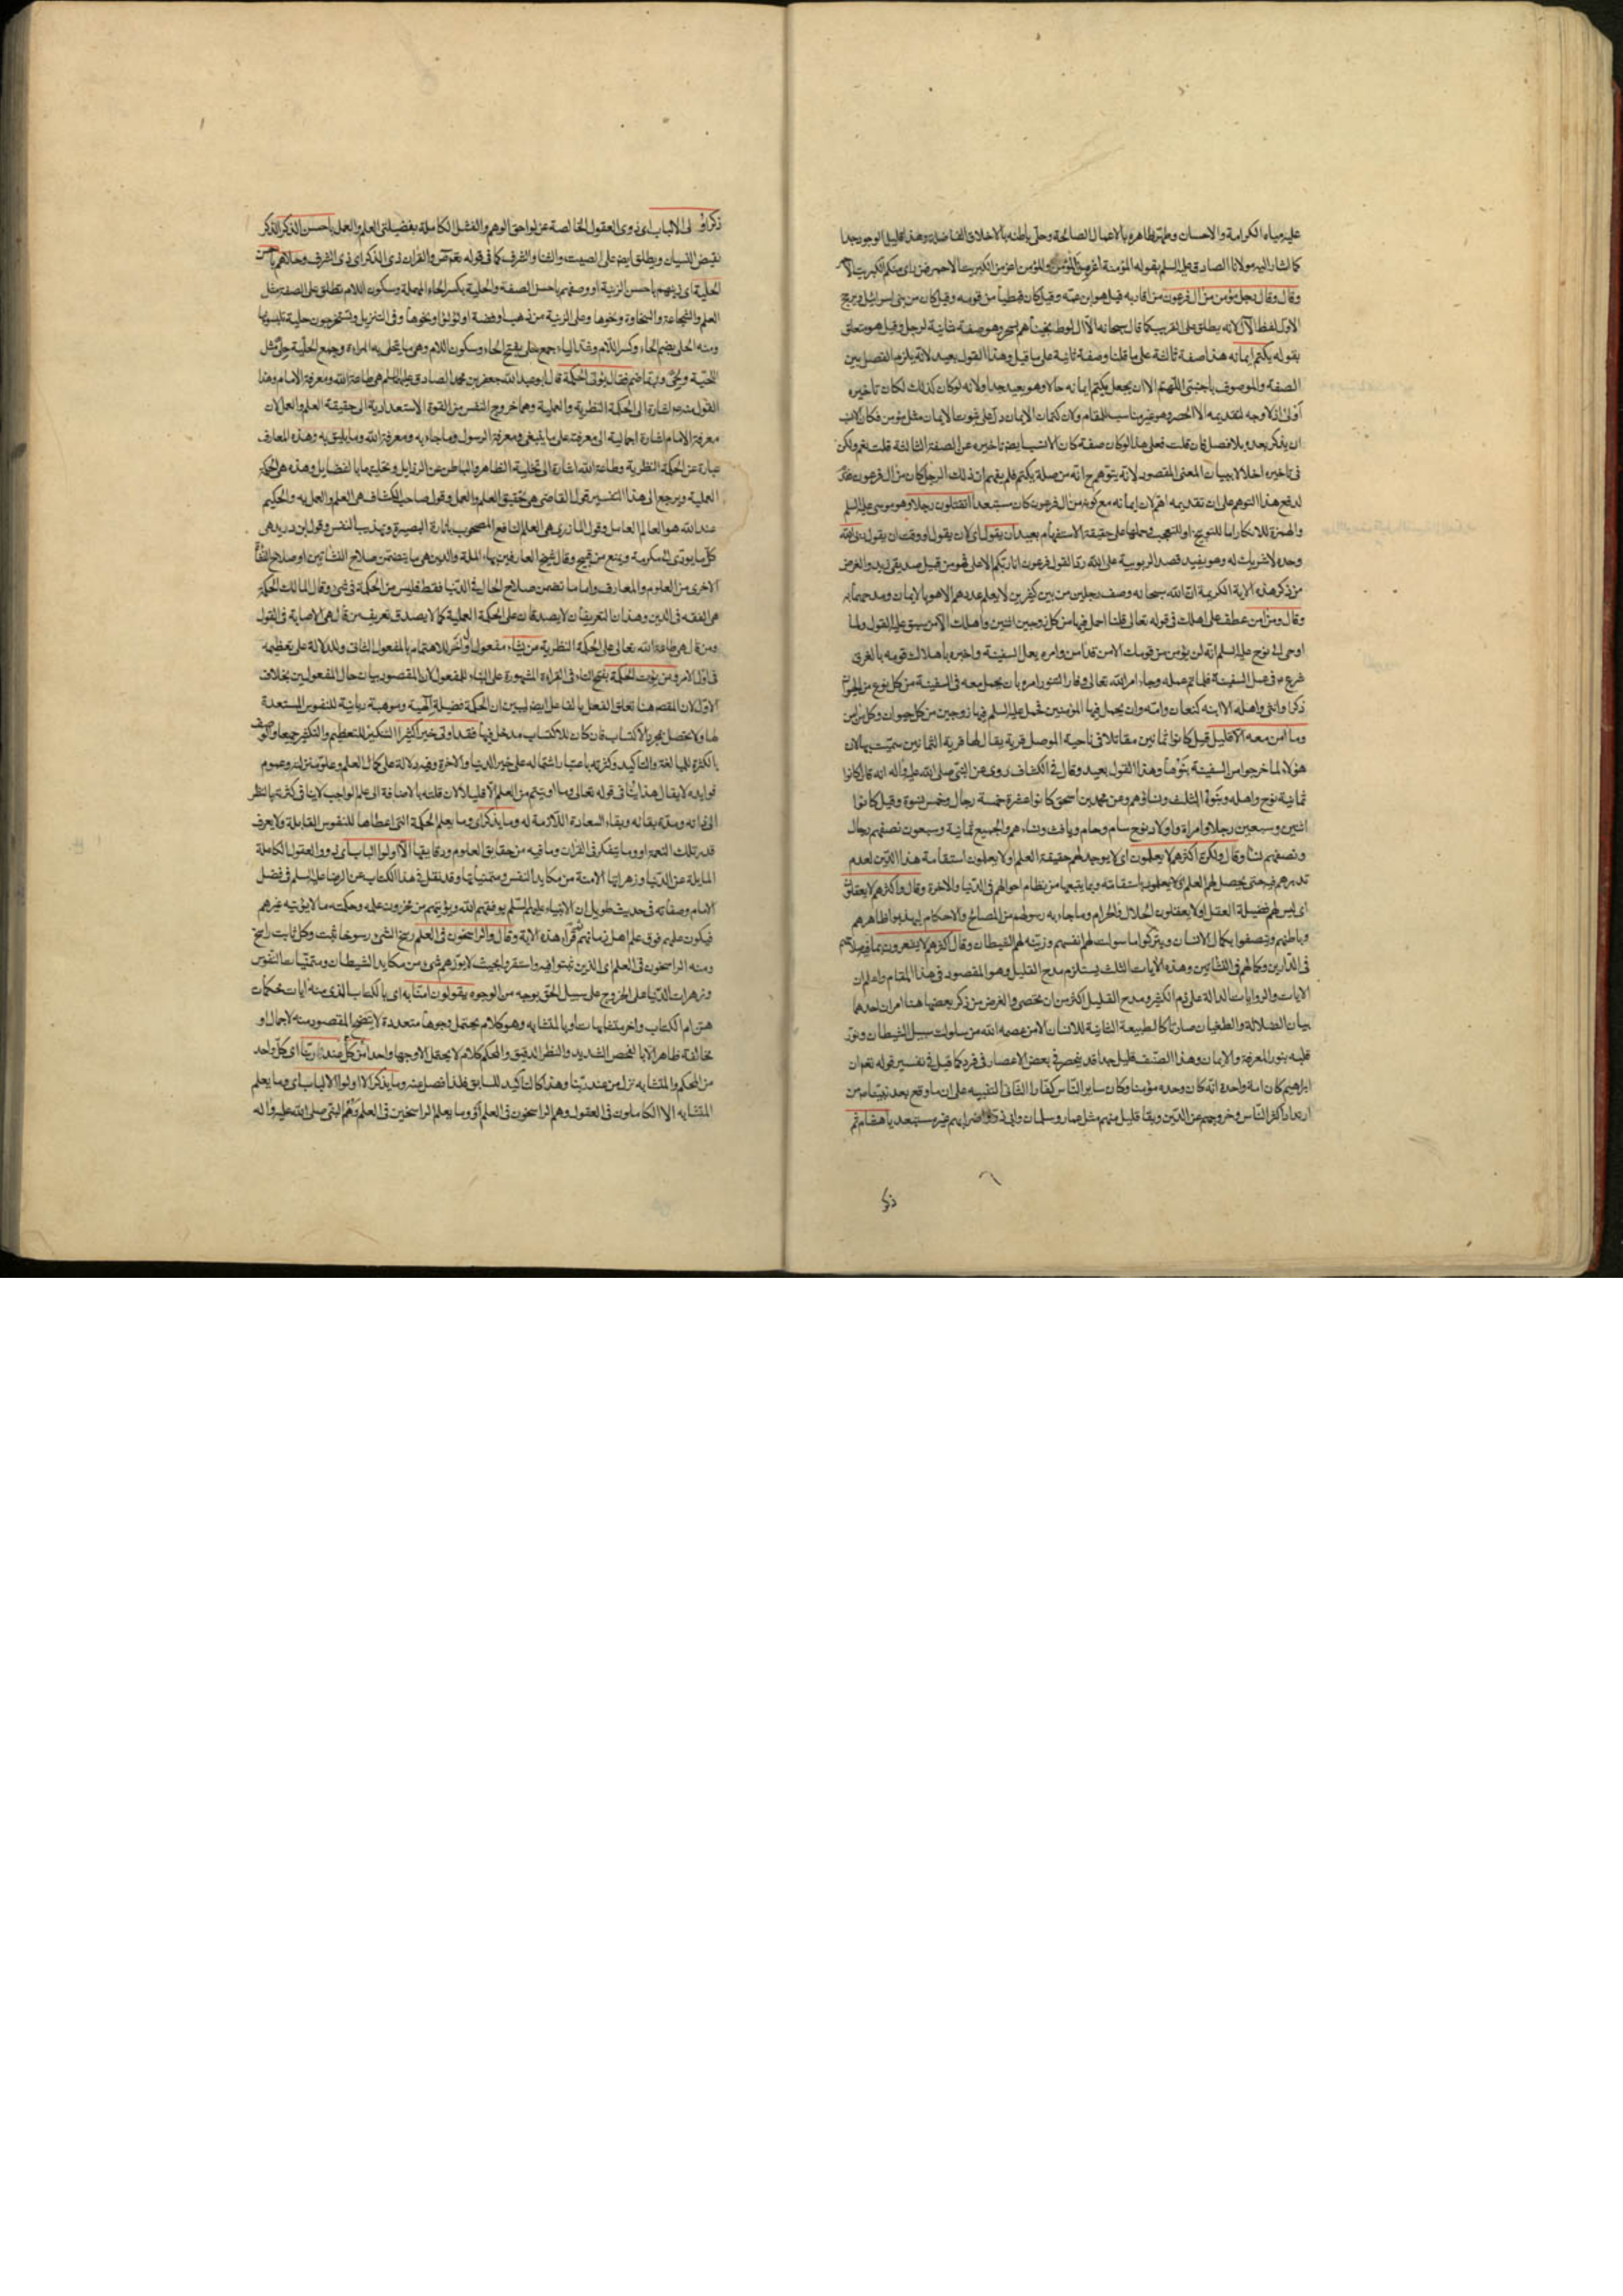 عليه مياه الكرامة والاحسان وطهر ظاهره بالاعمال الصالحة وحلى باطنه بالاخلاق الفاضلة وهذا قليل الوجود جدا
كما اشار اليه مولانا الصادق عليه السلم بقوله المؤمنة اعز من المؤمن والمؤمن اعز من الكبريت الاحمر فمن راى منكم الكبريت الاحمر
وقال وقال رجل مؤمن من آل فرعون من اقاربه قيل هو ابن عمه وقيل كان قبطيا من قومه وقيل كان من بنى اسرائيل ويرجح
الاول لفظ الآل لانه يطلق على القريب كما قال سبحانه الا آل لوط نجيناهم بسحر وهو صفة ثانية لرجل وقيل هو متعلق
بقوله يكتم ايمانه هذا صفة ثالثة على ما قلنا وصفة ثانية على ما قيل وهذا القول بعيد لانه يلزم الفصل بين
الصفة والموصوف باجنبى اللهم الا ان يجعل يكتم ايمانه حالا وهو بعيد جدا ولانه لو كان كذلك لكان تاخيره
اولى اذ لا وجه لتقديمه الا الحصر وهو غير مناسب للمقام ولان كتمان الايمان دل على ثبوت الايمان مثل مؤمن فكان الانسب
ان يذكر بعده بلا فصل فان قلت فعلى هذا لو كان صفة كان الانسب ايضا تاخيره عن الصفة الثالثة قلت نعم ولكن
فى تاخيره اخلالا ببيان المعنى المقصود لانه يتوهم ح انه من صلة يكتم فلم يفهم ان ذلك الرجل كان من آل فرعون
لدفع هذا التوهم على ان تقديمه اهم لان ايمانه مع كونه من آل فرعون كان مستبعدا اتقتلون رجلا وهو موسى عليه السلم
والهمزة للانكار اما للتوبيخ او للتعجب وحملها على حقيقة الاستفهام بعيد ان يقول اى لان يقول او وقت ان يقول ربى الله
وحده لا شريك له وهو يفيد قصد الربوبية على الله ردا لقول فرعون انا ربكم الاعلى فهو من قبيل صديقى زيد والغرض
من ذكر هذه الاية الكريمة ان الله سبحانه وصف رجلين من بين كفرين لا يعلم عددهم الا هو بالايمان ومدحهما به
وقال ومن آمن عطف على اهلك فى قوله تعالى قلنا احمل فيها من كل زوجين اثنين واهلك الا من سبق عليه القول ولما
اوحى الى نوح عليه السلم انه لن يؤمن من قومك الا من قد آمن وامره بعمل السفينة واخبره باهلاك قومه بالغرق
شرع ع فى عمل السفينة فلما تم عمله وجاء امر الله تعالى وفار التنور امره بان يحمل معه فى السفينة من كل نوع من الحيوان
ذكرا وانثى واهله الا ابنه كنعان وامه وان يحمل فيها المؤمنين فحمل عليه السلم فيها زوجين من كل حيوان وكل من آمن
وما آمن معه الا قليل قيل كانوا ثمانين مقاتلا فى ناحية الموصل قرية يقال لها قرية الثمانين سميت بها لان
هؤلاء لما خرجوا من السفينة بنوها وهذا القول بعيد وقال فى الكشاف روى عن النبى صلى الله عليه وآله انه قال كانوا
ثمانية نوح واهله وبنوه الثلث ونساؤهم وعن محمد بن اسحق كانوا عشرة خمسة رجال وخمس نسوة وقيل كانوا
اثنين وسبعين رجلا وامراة واولاد نوح سام وحام ويافث ونساءهم والجميع ثمانية وسبعون نصفهم رجال
ونصفهم نساء وقال ولكن اكثرهم لا يعلمون اى لا يوجد لهم حقيقة العلم او لا يعلمون استقامة هذا الدين لعدم
تدبرهم فيه حتى يحصل لهم العلم باستقامته وبما يتبعها من نظام احوالهم فى الدنيا والاخرة وقال واكثرهم لا يعقلون
اى ليس لهم فضيلة العقل او لا يعقلون الحلال والحرام وما جاء به رسولهم من المصالح والاحكام ليهذبوا ظاهرهم
وباطنهم ويتصفوا بكمال الانسان ويتركوا ما سولت لهم انفسهم وزينه لهم الشيطان وقال اكثرهم لا يشعرون
فى الدارين وكمالهم فى النشاتين وهذه الآيات الثلث يستلزم مدح القليل وهو المقصود فى هذا المقام واعلم ان
الايات والروايات الدالة على ذم الكثير ومدح القليل اكثر من ان يحصى والغرض من ذكر بعضها هنا امران احدهما
بيان الضلالة والطغيان صارتا كالطبيعة الثانية للانسان الا من عصمه الله من سلوك سبيل الشيطان ونور
قلبه بنور المعرفة والايمان وهذا الصنف قليل جدا قد ينحصر فى بعض الاعصار فى فرد كما قيل فى تفسير قوله تعم ان
ابراهيم كان امة واحدة انه كان وحده مؤمنا وكان ساير الناس كفارا الثانى التنبيه على ان ما وقع بعد نبينا ص من
ارتداد اكثر الناس وخروجهم عن الدين وبقاء قليل منهم مثل عمار وسلمان وابى ذر واضرابهم غير مستبعد يا هشام ثم
ذكر
ذكر اولى الالباب اى ذوى العقول الخالصة عن لواحق الوهم والفضل الكاملة بفضيلتى العلم والعمل باحسن الذكر الذكر
نقيض النسيان ويطلق ايض على الصيت والثناء والشرف كما فى قوله تعم ص والقران ذى الذكر اى ذى الشرف وحلاهم باحسن
الحلية اى زينهم باحسن الزينة او وصفهم باحسن الصفة والحلية بكسر الحاء المهملة وسكون اللام تطلق على الصفة مثل
العلم والشجاعة والسخاوة ونحوها وعلى الزينة من ذهب او فضة او لؤلؤ او نحوها وفى التنزيل وتستخرجون حلية تلبسونها
ومنه الحلى بضم الحاء وكسر اللام وشد الياء جمع حلى بفتح الحاء وسكون اللام وهى ما يتحلى به المراءة وجمع الحلية حلى مثل
اللحية ولحى وربما ضم فقال يؤتى الحكمة قال ابو عبد الله جعفر بن محمد الصادق عليهما السلم هى طاعة الله ومعرفة الامام وهذا
القول منه ع اشارة الى الحكمة النظرية والعملية وهما خروج النفس من القوة الاستعدادية الى حقيقة العلم والعمل لان
معرفة الامام اشارة اجمالية الى معرفة على ما ينبغى ومعرفة الرسول وما جاء به ومعرفة الله وما يليق به وهذه المعارف
عبارة عن الحكمة النظرية وطاعة الله اشارة الى تخلية الظاهر والباطن عن الرذايل وتحليتهما بالفضايل وهذه هى الحكمة
العملية ويرجع الى هذا التفسير قول القاضى هى تحقيق العلم والعمل وقول صاحب الكشاف هى العلم والعمل به والحكيم
عند الله هو العالم العامل وقول المازرى هى العلم النافع المصحوب بانارة البصيرة وتهذيب النفس وقول ابن دريد هى
كل ما يؤدى الى مكرمة ويمنع من قبيح وقال شيخ العارفين بهاء الملة والدين هى ما يتضمن صلاح النشاتين او صلاح النشاة
الاخرى من العلوم والمعارف واما ما تضمن صلاح الحال فى الدنيا فقط فليس من الحكمة فى شئ وقال المالك الحكمة
هى الفقه فى الدين وهذان التعريفان لا يصدقان على الحكمة العملية كما لا يصدق تعريف من قال هى الاصابة فى القول
ومن قال هى طاعة الله تعالى على الحكمة النظرية من يشاء مفعول اول اخر للاهتمام بالمفعول الثانى وللدلالة على تعظيمه
فى اول الامر ومن يؤت الحكمة بفتح التاء فى القراءة المشهورة على البناء للمفعول لان المقصود بيان حال المفعولين بخلاف
الاول لان المقصد هنا تعلق الفعل بالفاعل ايض ليبين ان الحكمة فضيلة آلهية وموهبة ربانية للنفوس المستعدة
لها ولا تحصل بمجرد الاكتساب فان كان للاكتساب مدخل فيها فقد اوتى خيرا كثيرا التنكير للتعظيم والتكثير جميعا والوصف
بالكثرة للمبالغة والتاكيد وكثرته باعتبار اشتماله على خير الدنيا والاخرة وفيه دلالة على كمال العلم وعلو منزلته وعموم
فوايده لا يقال هذا ينافى قوله تعالى وما اوتيتم من العلم الا قليلا لان قلته بالاضافة الى علم الواجب لا ينافى كثرته بالنظر
الى ذاته ومدة بقائه وبقاء السعادة اللازمة له وما يذكر اى وما يعلم الحكمة التى اعطاها للنفوس القابلة ولا يعرف
قدر تلك النعمة او وما يتفكر فى القرآن وما فيه من حقايق العلوم ودقايقها الا اولوا الالباب اى ذوو العقول الكاملة
المايلة عن الدنيا وزهراتها الامنة من مكايد النفس ومتمنياتها وقد نقل فى هذا الكتاب عن الرضا عليه السلم فى فضل
الامام وصفاته فى حديث طويل ان الانبياء عليهم السلم يوفقهم الله ويؤتيهم من مخزون علمه وحكمته ما لا يؤتيه غيرهم
فيكون علمهم فوق علم اهل زمانهم ثم قراء هذه الاية وقال والراسخون فى العلم رسخ الشئ رسوخا ثبت وكل ثابت راسخ
ومنه الراسخون فى العلم اى الذين ثبتوا فيه واستقروا بحيث لا يؤدهم شئ من مكايد الشيطان ومتمنيات النفوس
وزهرات الدنيا على الخروج على سبيل الحق بوجه من الوجوه يقولون امنا به اى بالكتاب الذى منه ايات محكمات
هن ام الكتاب واخر متشابهات او بالمتشابه وهو كلام يحتمل وجوها متعددة لا يتضح المقصود منه لاجمال او
مخالفة ظاهر الا بالفحص الشديد والنظر الدقيق والمحكم كلام لا يحتمل الا وجها واحدا من كل عند ربنا اى كل واحد
من المحكم والمتشابه نزل من عند ربنا وهذا كالتاكيد للسابق فلذا فصل عنه وما يذكر الا اولوا الالباب اى وما يعلم
المتشابه الا الكاملون فى العقول وهم الراسخون فى العلم او وما يعلم الراسخين فى العلم النبى صلى الله عليه وآله